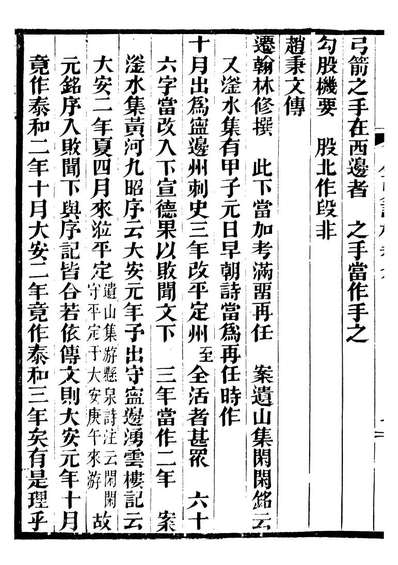 弓箭之手在西邊者　之手當作手之
勾股機要　股北作段非
趙秉文傳
遷翰林修撰　此下當加考滿畱再任　案遺山集閑閑銘云
又滏水集有甲子元日早朝詩當爲再任時作
十月出爲寧邊州刺史三年改平定州至全活者甚眾　六十
六字當改入下宣德果以敗聞文下　三年當作二年　案
滏水集黃河九昭序云大安元年予出守寧邊湧雲樓記云
大安二年夏四月來涖平定遺山集游懸泉詩注云閑閑守平定于大安庚午來游故
元銘序入敗聞下與序記皆合若依傳文則大安元年十月
竟作泰和二年十月大安二年竟作泰和三年矣有是理乎